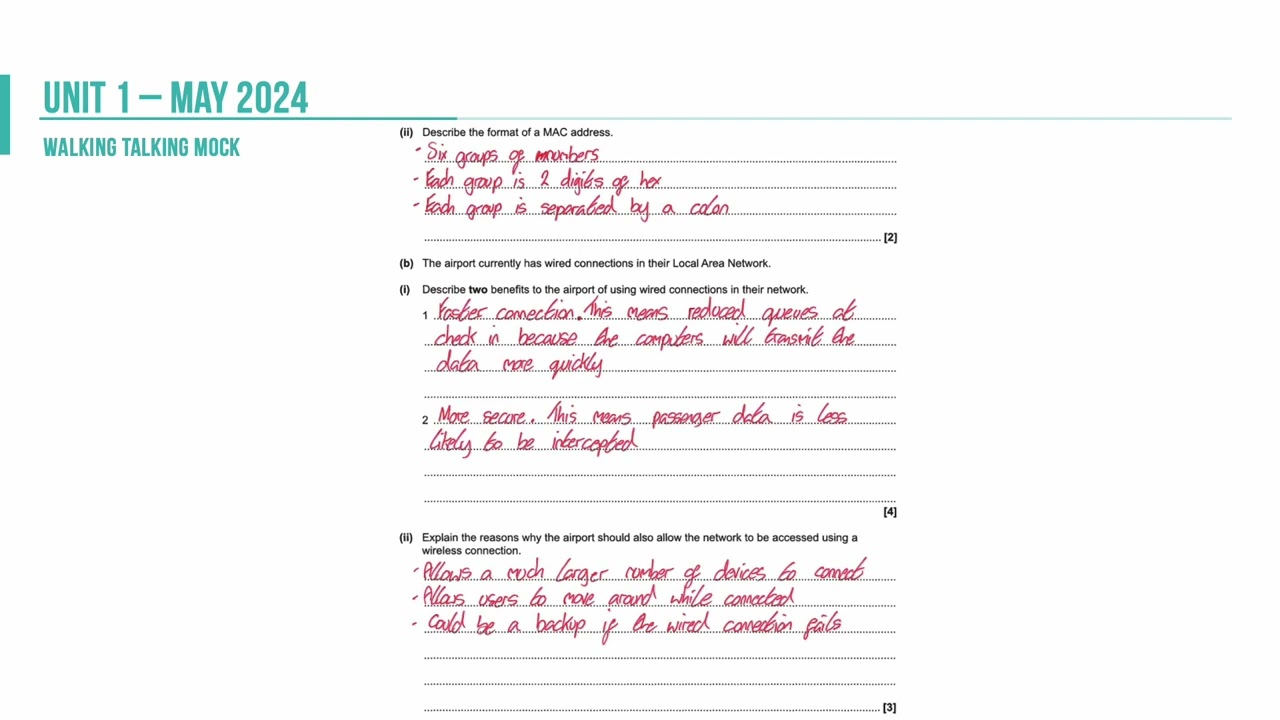 UNIT 1 – MAY 2024
WALKING TALKING MOCK
(ii) Describe the format of a MAC address.
- Six groups of numbers
- Each group is 2 digits of hex
- Each group is separated by a colon
[2]
(b) The airport currently has wired connections in their Local Area Network.
(i) Describe two benefits to the airport of using wired connections in their network.
1 Faster connection. This means reduced queues at
check in because the computers will transmit the
data more quickly
2 More secure. This means passenger data is less
likely to be intercepted
[4]
(ii) Explain the reasons why the airport should also allow the network to be accessed using a
wireless connection.
- Allows a much larger number of devices to connect
- Allows users to move around while connected
- Could be a backup if the wired connection fails
[3]